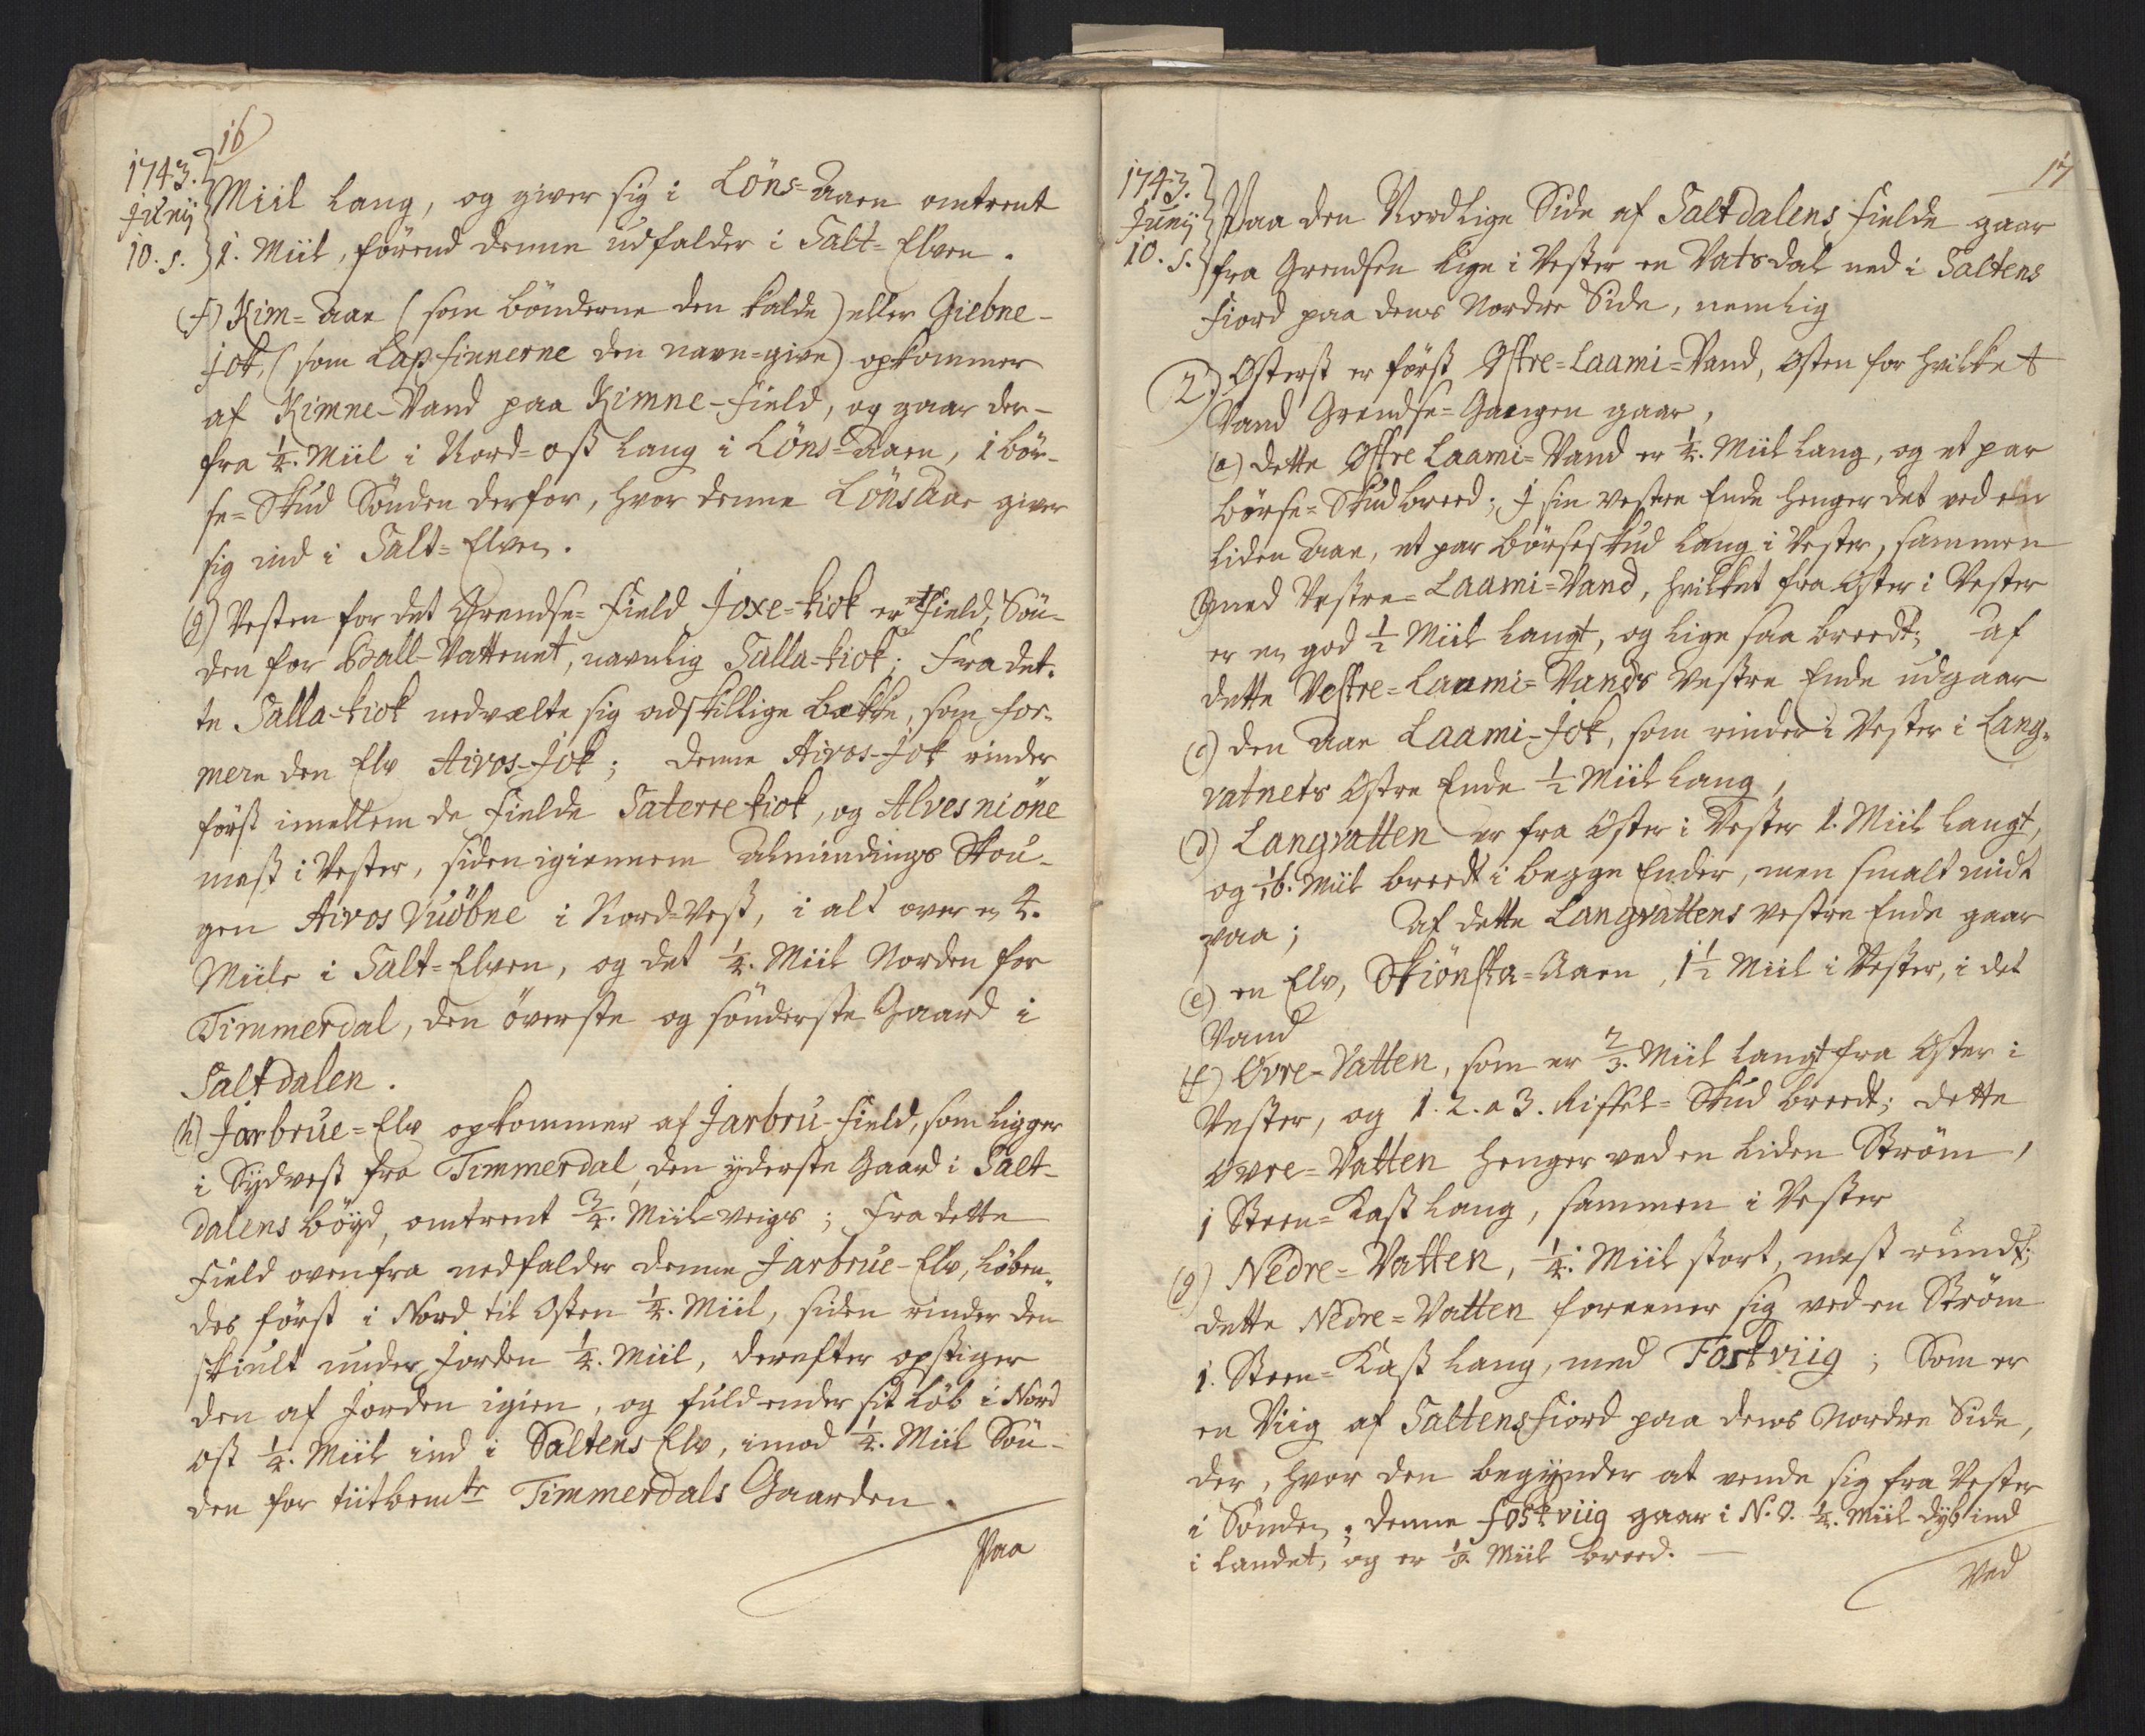 16
1743. Miil lang, og giver sig i Löns=Aaen omtrent
Junij 1. Miil, förend denne udfalder i Salt=Elven.
10. s.
(f) Kim=Aae (som bönderne den kalde) eller Giebne-
jok, (som Lapfinnerne den navn=give) opkommer
af Kimne-Vand paa Kimne-field, og gaar der-
fra 1/4. Miil i Nord=ost lang i Löns=Aaen, 1 bös-
se=Skud Sönden derfor, hvor denne Lönsaae giver
sig ind i Salt=Elven.
(g) Vesten for det Grendse=Field Joxe=kiok er et Field, Sön-
den for Ball-Vattenet, navnlig Salla-kiok; Fra det-
te Salla-kiok nedvælte sig adskillige bække, som for-
mere den Elv Aivos-Jok; denne Aivos-Jok rinder
först imellem de Fielde Saterrekiok, og Alvesniöne
mest i Vester, siden igiennem Almindings Skou-
gen Aivos Vuöbne i Nord=Vest, i alt over en 2.
Miile i Salt=Elven, og det 1/4. Miil Norden for
Timmerdal, den överste og sönderste Gaard i
Saltdalen.
(h) Jarbrue=Elv opkommer af Jarbru-Field, som ligger
i Sydvest fra Timmerdal, den yderste Gaard i Salt-
dalens böyd, omtrent 3/4. Miil=veigs; Fra dette
Field ovenfra nedfalder denne Jarbrue-Elv, löben-
des först i Nord til Osten 1/4. Miil, siden rinder den
skiult under Jorden 1/4. Miil, derefter opstiger
den af Jorden igien, og fuldender sit Löb i Nord
ost 1/4. Miil ind i Saltens Elv, imod 1/4. Miil Sön-
den for tiitbemte Timmerdals Gaarden.
Paa
17
1743. Paa den Nordlige Side af Saltdalens Fielde gaar
Junij
10. s. fra Grendsen lige i Vester en Vatsdal ned i Saltens
Fiord paa dens Nordre Side, nemlig
2.) Osterst er först Östre=Laami=Vand, Osten for hvilket
Vand Grendse=Gangen gaar,
(a) dette Östre Laami=Vand er 1/4. Miil lang, og et par
börse=Skud breed; I sin vestre Ende henger det ved en
liden Aae, et par börseskud lang i Vester, sammen
med Vestre=Laami=Vand, hvilket fra Öster i Vester
er en god 1/2 Miil langt, og lige saa breedt; af
dette Vestre=Laami=Vands vestre Ende udgaar
(c) den Aae Laami-Jok, som rinder i Vester i Lang-
vatnets Östre Ende 1/2 Miil lang,
(d) Langvatten er fra Öster i Vester 1. Miil langt,
og 1/16. Miil breedt i begge Ender, men smalt midt
paa; af dette Langvattens vestre Ende gaar
(e) en Elv, Skiönsta=Aaen, 1 1/2 Miil i Vester, i det
Vand
(f) Övre-Vatten, som er 2/3. Miil langt fra Öster i
Vester, og 1. 2. a 3. Riffel=Skud breedt; dette
Övre=Vatten henger ved en liden Ström,
1 Steen=Kast lang, sammen i Vester
(g) Nedre=Vatten, 1/4. Miil stort, mest rundt;
dette Nedre=Vatten foreener sig ved en Ström
1. Steen=Kast lang, med Foskviig; Som er
en Viig af Saltensfiord paa dens Nordre Side,
der, hvor den begynder at vende sig fra Vester
i Sönden; denne Foskviig gaar i N.O. 1/4. Miil dyb ind
i Landet, og er 1/8. Miil breed.
Ved